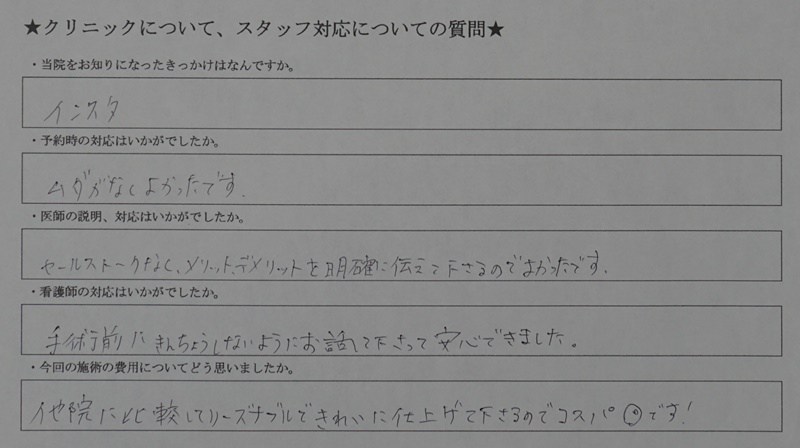 ★クリニックについて、スタッフ対応についての質問★
・当院をお知りになったきっかけはなんですか。
インスタ
・予約時の対応はいかがでしたか。
ムダがなくよかったです。
・医師の説明、対応はいかがでしたか。
セールストークなく、メリット、デメリットを明確に伝えて下さるのでよかったです。
・看護師の対応はいかがでしたか。
手術前にきんちょうしないようにお話して下さって安心できました。
・今回の施術の費用についてどう思いましたか。
他院に比較してリーズナブルできれいに仕上げて下さるのでコスパ◎です!